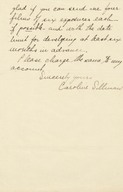 glad if you can send me four
films of six exposures each
if possible, and with the date
limit for developing at least six
months in advance.
Please charge the same to my
account.
Sincerely yours,
Caroline